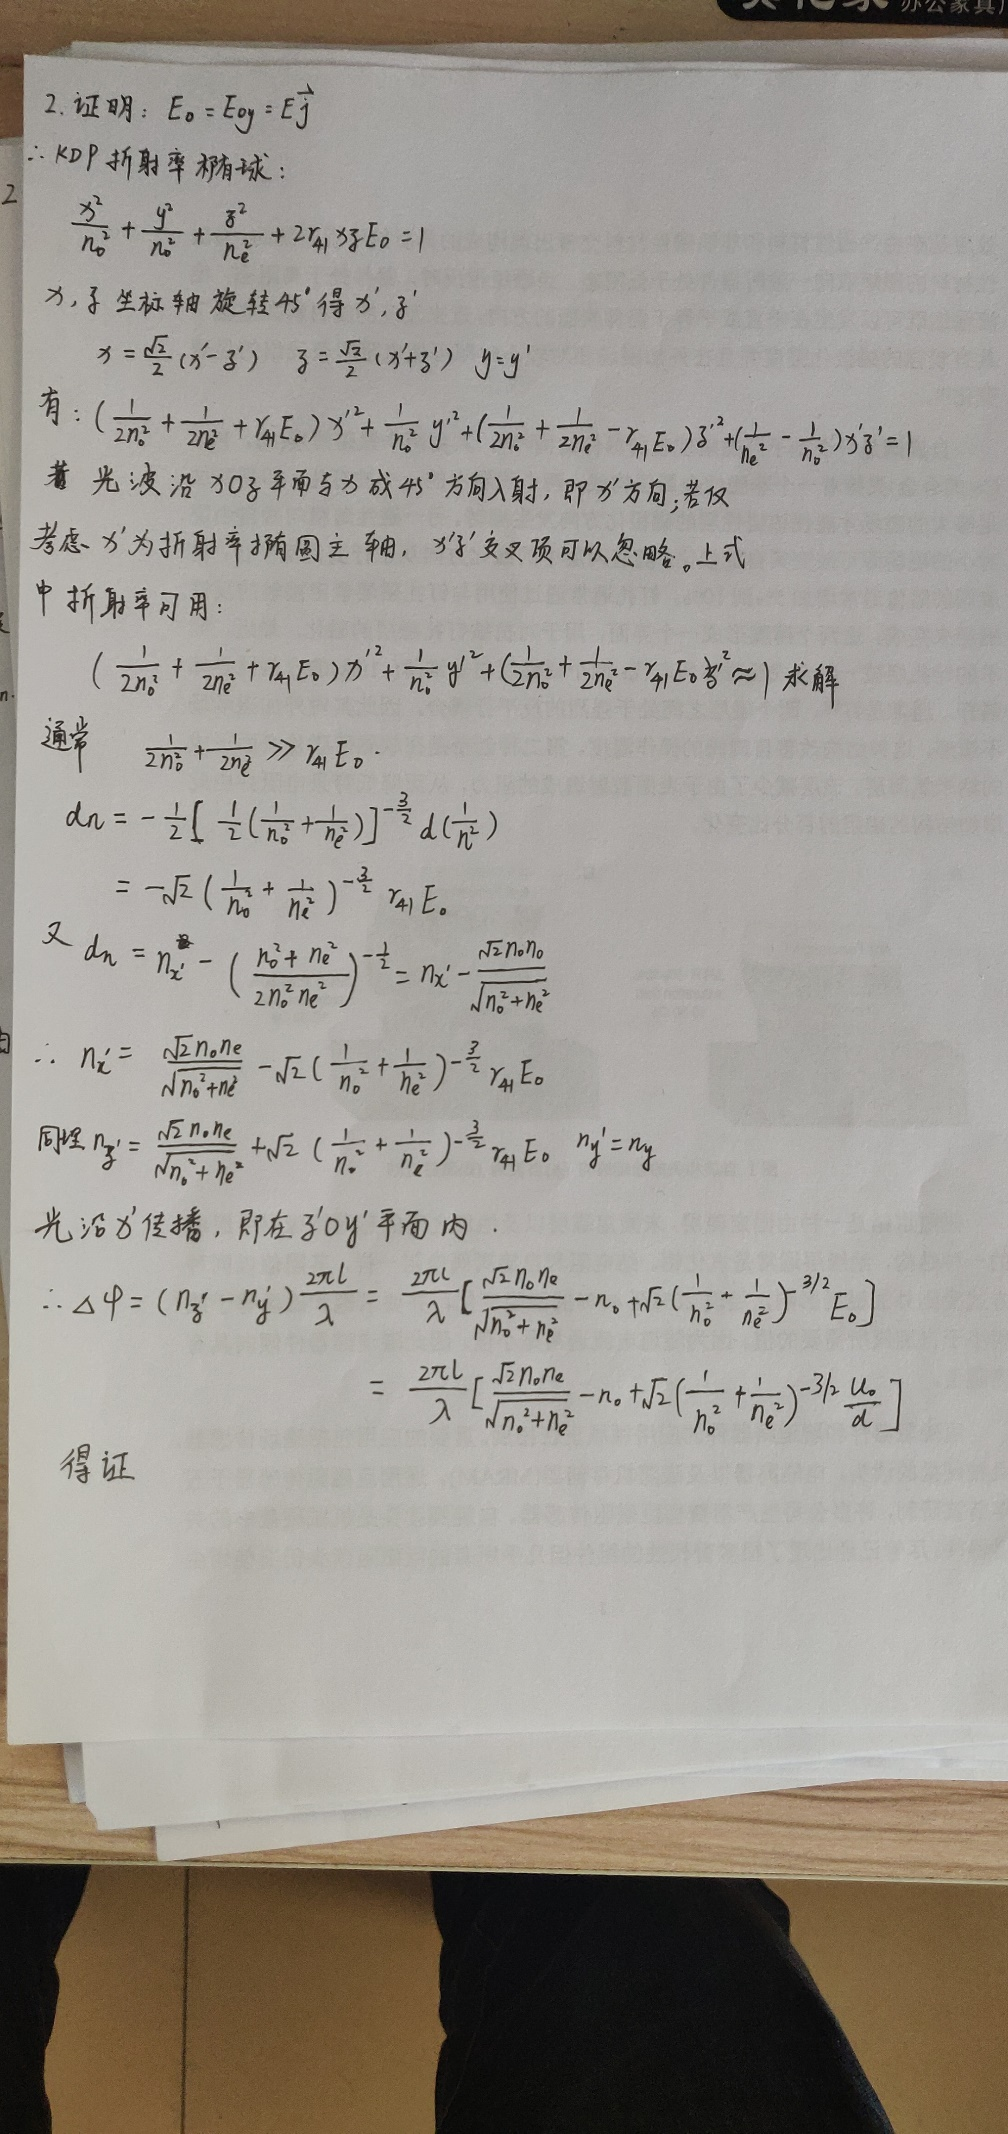 办公家具
2. 证明: E₀ = E₀y = E j⃗
∴ KDP 折射率椭球:
x²/n₀² + y²/n₀² + z²/nₑ² + 2γ₄₁xzE₀ = 1
x, z 坐标轴旋转45°得x′, z′
x = √2/2 (x′ - z′) z = √2/2 (x′+z′) y = y′
有: (1/2n₀² + 1/2nₑ² + γ₄₁E₀) x′² + 1/n₀² y′² + (1/2n₀² + 1/2nₑ² - γ₄₁E₀) z′² + (1/nₑ² - 1/n₀²) x′z′ = 1
光波沿xOz平面与x成45°方向入射, 即x′方向; 若仅
考虑x′为折射率椭圆主轴, x′z′交叉项可以忽略。上式
中折射率可用:
(1/2n₀² + 1/2nₑ² + γ₄₁E₀) x′² + 1/n₀² y′² + (1/2n₀² + 1/2nₑ² - γ₄₁E₀) z′² ≈ 1 求解
通常 1/2n₀² + 1/2nₑ² ≫ γ₄₁E₀.
dn = -1/2 [1/2 (1/n₀² + 1/nₑ²)]^(-3/2) d(1/n²)
= -√2 (1/n₀² + 1/nₑ²)^(-3/2) γ₄₁E₀
又 dn = nx′ - ((n₀² + nₑ²)/(2n₀²nₑ²))^(-1/2) = nx′ - √2n₀n₀/√(n₀²+nₑ²)
∴ nx′ = √2n₀nₑ/√(n₀²+nₑ²) - √2 (1/n₀² + 1/nₑ²)^(-3/2) γ₄₁E₀
同理 nz′ = √2n₀nₑ/√(n₀²+nₑ²) + √2 (1/n₀² + 1/nₑ²)^(-3/2) γ₄₁E₀ ny′ = ny
光沿x′传播, 即在z′Oy′平面内.
∴ Δφ = (nz′ - ny′) 2πl/λ = 2πl/λ [√2n₀nₑ/√(n₀²+nₑ²) - n₀ + √2 (1/n₀² + 1/nₑ²)^(-3/2) E₀]
= 2πl/λ [√2n₀nₑ/√(n₀²+nₑ²) - n₀ + √2 (1/n₀² + 1/nₑ²)^(-3/2) U₀/d]
得证